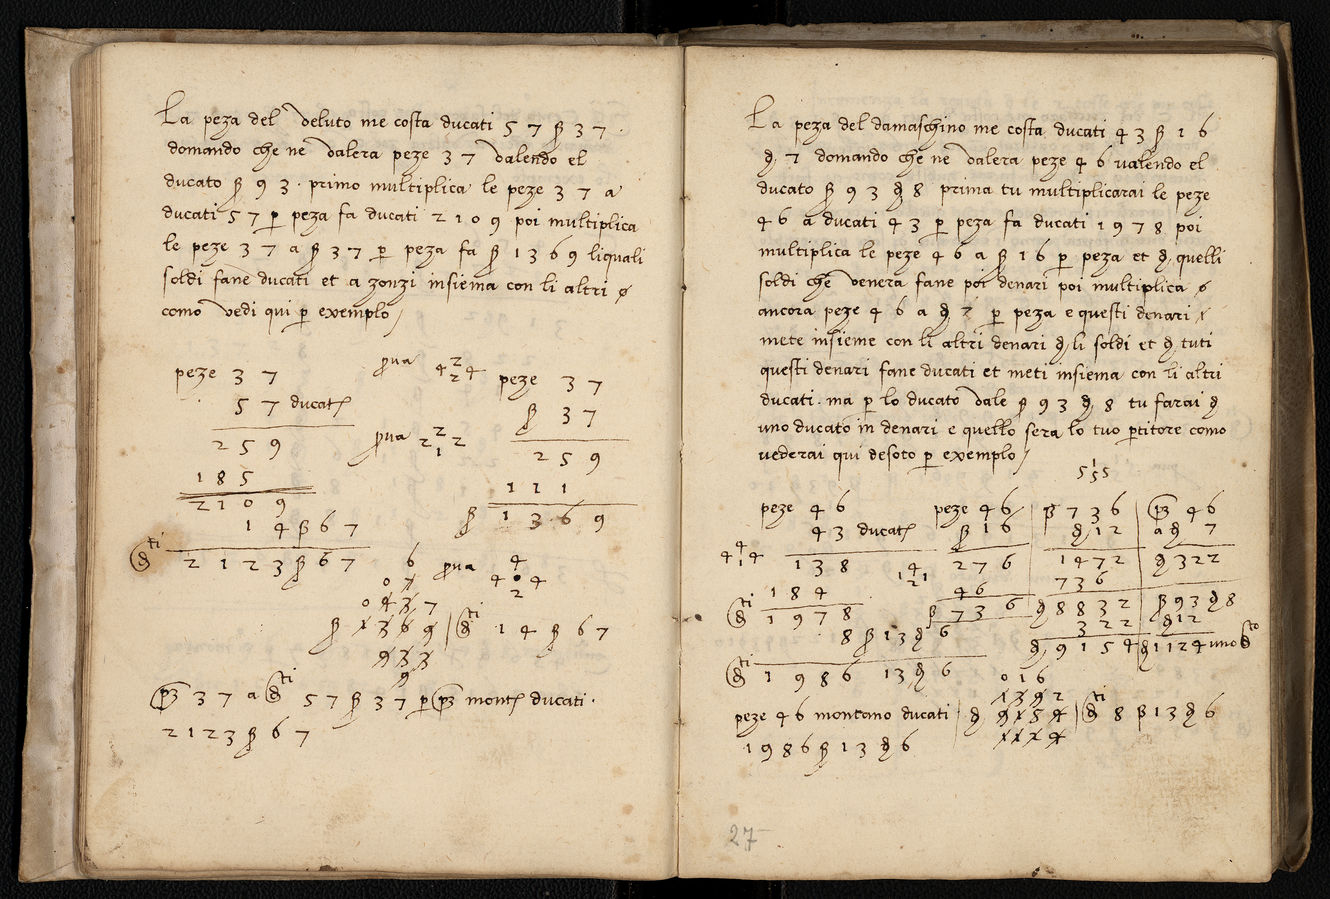 La peza del veluto me costa ducati 5 7 ß 3 7 .
domando che ne valera peze 3 7 valendo el
ducato ß 9 3 . primo multiplica le peze 3 7 a
ducati 5 7 p peza fa ducati 2 1 0 9 poi multiplica
le peze 3 7 a ß 3 7 p peza fa ß 1 3 6 9 liquali
soldi fane ducati et a zonzi insiema con li altri
como vedi qui p exemplo /
peze 3 7
5 7 ducati
2 5 9
1 8 5
2 1 0 9
1 4 ß 6 7
2 1 2 3 ß 6 7
prua 4 2 2 4
prua 2 2 1 2
peze 3 7
ß 3 7
2 5 9
1 1 1
ß 1 3 6 9
prua 4 4 4 2
6
0 7
0 4 3 7
ß 1 3 6 9 | 1 4 ß 6 7
9 3 3
9
pz 3 7 a 5 7 ß 3 7 p pz mont ducati .
2 1 2 3 ß 6 7
La peza del damaschino me costa ducati 4 3 ß 1 6
₰ 7 domando che ne valera peze 4 6 valendo el
ducato ß 9 3 ₰ 8 prima tu multiplicarai le peze
4 6 a ducati 4 3 p peza fa ducati 1 9 7 8 poi
multiplica le peze 4 6 a ß 1 6 p peza et ₰ quelli
soldi che venera fane poi denari poi multiplica
ancora peze 4 6 a ₰ 7 p peza e questi denari
mete insieme con li altri denari ₰ li soldi et ₰ tuti
questi denari fane ducati et meti insiema con li altri
ducati . ma p lo ducato vale ß 9 3 ₰ 8 tu farai ₰
uno ducato in denari e quello sera lo tuo ptitore como
vederai qui desoto p exemplo /
5 1 5 5
peze 4 6
4 3 ducati
1 3 8
1 8 4
1 9 7 8
8 ß 1 3 ₰ 6
1 9 8 6 13 ₰ 6
4 4 1 4
peze 4 6
ß 1 6
2 7 6
4 6
ß 7 3 6
4 1 1 2
ß 7 3 6
₰ 1 2
1 4 7 2
7 3 6
₰ 8 8 3 2
3 2 2
₰ 9 1 5 4
pz 4 6
a ₰ 7
₰ 3 2 2
ß 9 3 ₰ 8
₰ 1 2
₰ 1 1 2 4 uno
0 1 6
1 3 9 2
₰ 9 1 5 4 | 8 ß 1 3 ₰ 6
1 1 2 4
peze 4 6 montano ducati
1 9 8 6 ß 1 3 ₰ 6
27